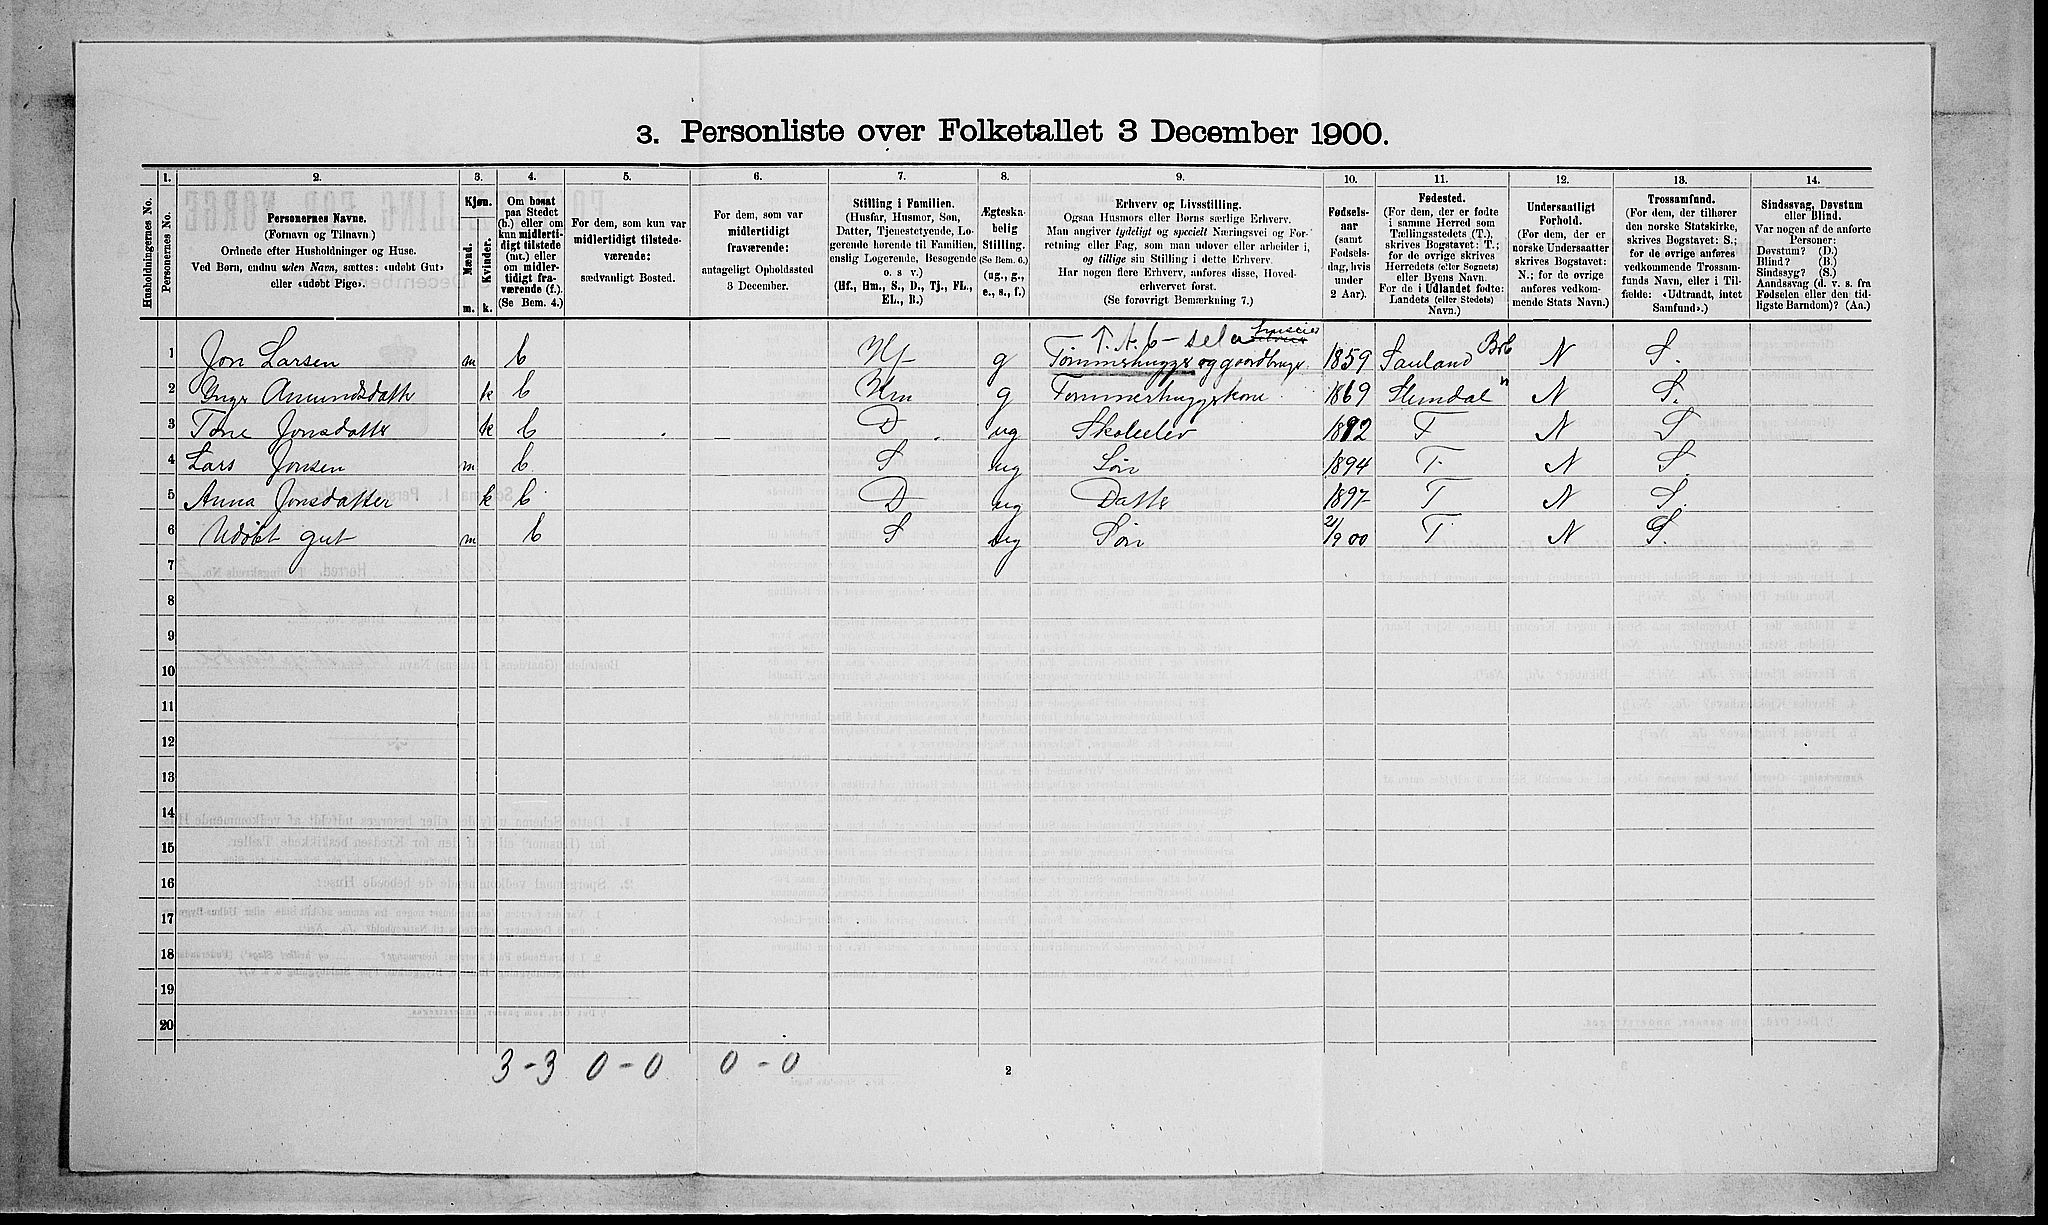 3. Personliste over Folketallet 3 December 1900.
1. 2. 3. 4. 5. 6. 7. 8. 9. 10. 11. 12. 13. 14.
Husholdningernes No.
Personernes No.
Personernes Navne.
(Fornavn og Tilnavn)
Ordnede efter Husholdninger og Huse.
Ved Børn, endnu uden Navn, sættes: «udøbt Gut»
eller «udøbt Pige».
Kjøn.
Mænd.
Kvinder.
m. k.
Om bosat
paa Stedet
(b.) eller om
kun midlerti-
digt tilstede
(mt.) eller
om midler-
tidigt fra-
værende (f.).
(Se Bem. 4.)
For dem, som kun var
midlertidigt tilstede-
værende:
sædvanligt Bosted.
For dem, som var
midlertidigt
fraværende:
antageligt Opholdssted
3 December.
Stilling i Familien.
(Husfar, Husmor, Søn,
Datter, Tjenestetyende, Lo-
gerende hørende til Familien,
enslig Logerende, Besøgende
o. s. v.)
(Hf., Hm., S., D., Tj., FL.,
EL., B.)
Ægteska-
belig
Stilling.
(Se Bem. 6.)
(ug., g.,
e., s., f.)
Erhverv og Livsstilling.
Ogsaa Husmors eller Børns særlige Erhverv.
Man angiver tydeligt og specielt Næringsvei og For-
retning eller Fag, som man udover eller arbeider i,
og tillige sin Stilling i dette Erhverv.
Har nogen flere Erhverv, anføres disse, Hoved-
erhvervet først.
(Se forøvrigt Bemærkning 7.)
Fødsels-
aar
(samt
Fødsels-
dag, hvis
under
2 Aar).
Fødested.
(For dem, der er fødte
i samme Herred som
Tællingsstedets (T.),
skrives Bogstavet: T.;
for de øvrige skrives
Herredets (eller Sognets)
eller Byens Navn.
For de i Udlandet fødte:
Landets (eller Stedets)
Navn.)
Undersaatligt
Forhold.
(For dem, der er
norske Undersaatter
skrives Bogstavet:
N.; for de øvrige
anføres vedkom-
mende Stats Navn.)
Trossamfund.
(For dem, der tilhører
den norske Statskirke,
skrives Bogstavet: S.;
for de øvrige anføres
vedkommende Trossam-
funds Navn, eller i Til-
fælde: «Udtraadt, intet
Samfund».)
Sindssvag, Døvstum
eller Blind.
Var nogen de anførte
Personer:
Døvstum? (D.)
Blind? (B.)
Sindssyg? (S.)
Aandssvag (d. v. s. fra
Fødselen eller den tid-
ligste Barndom)? (Aa.)
1 Jon Larsen m b Hf g Tømmerhugger og gaardbruger 1859 Sauland Brb N S.
2 Amundsdatter k b Hm g Tømmerhuggerkone 1869 N S.
3 Tone Jonsdatter k b D ug Skoleelev 1892 T N S
4 Lars Jonsen m b S ug Søn 1894 T. N S.
5 Anna Jonsdatter k b D ug Datter 1897 T N S.
6 Udøbt gut m b S ug Søn 21/9 00 T. N S.
7
8
9
10
11
12
13
14
15
16
17
18
19
20
3 - 3 0 - 0 0 - 0
2